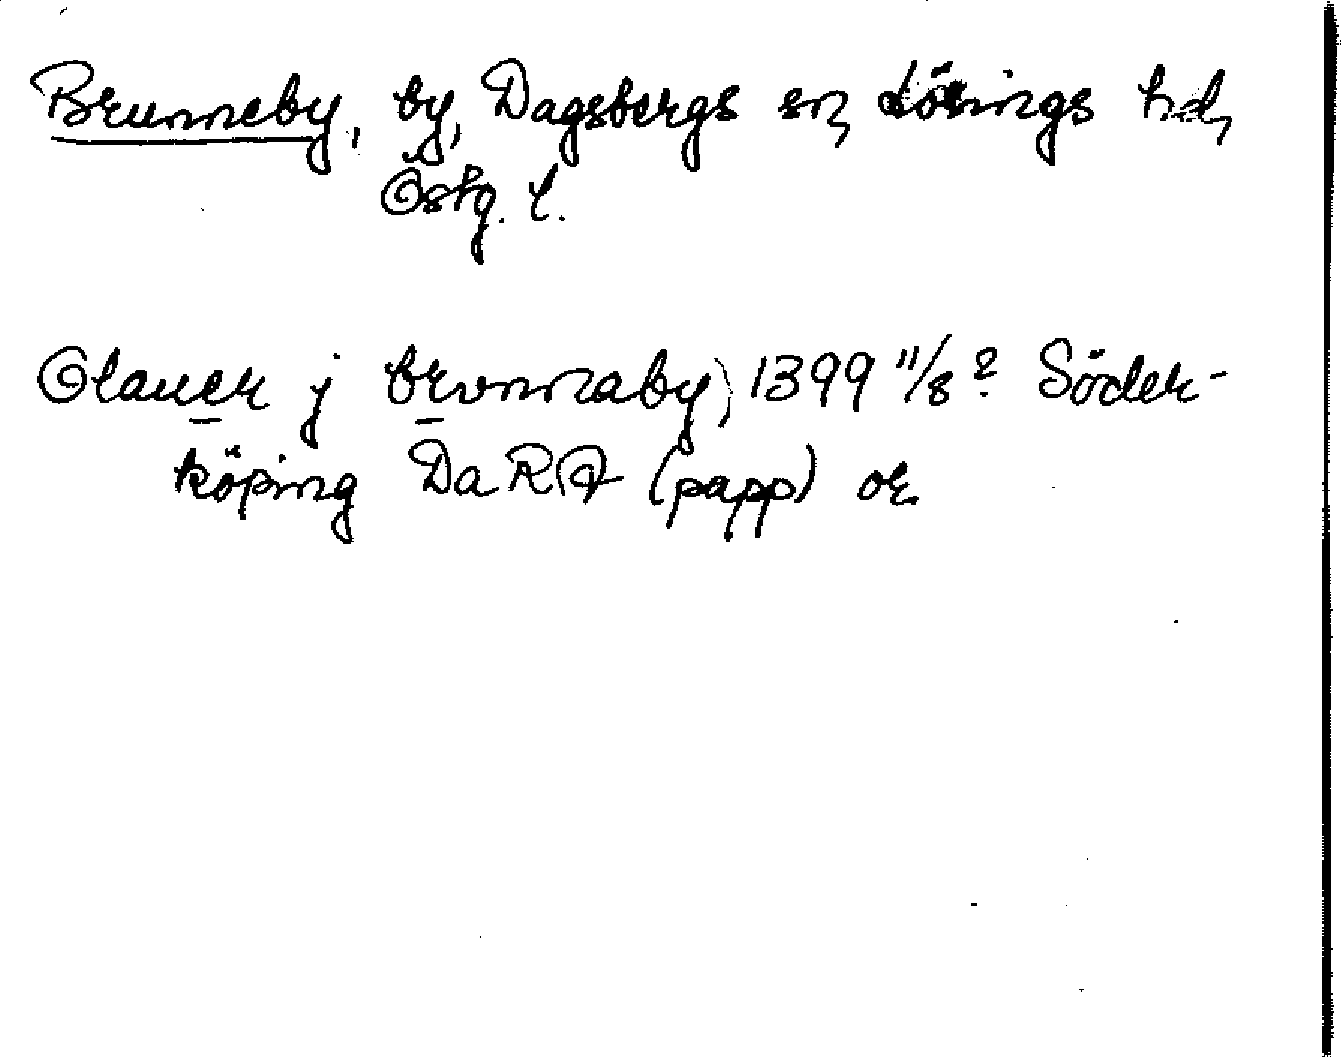 Brunneby, by, Dagsbergs sn, Lösings hd,
Östg. l.
Olauer j brvnnaby, 1399 11/8? Söder-
köping Da RA (papp) or.